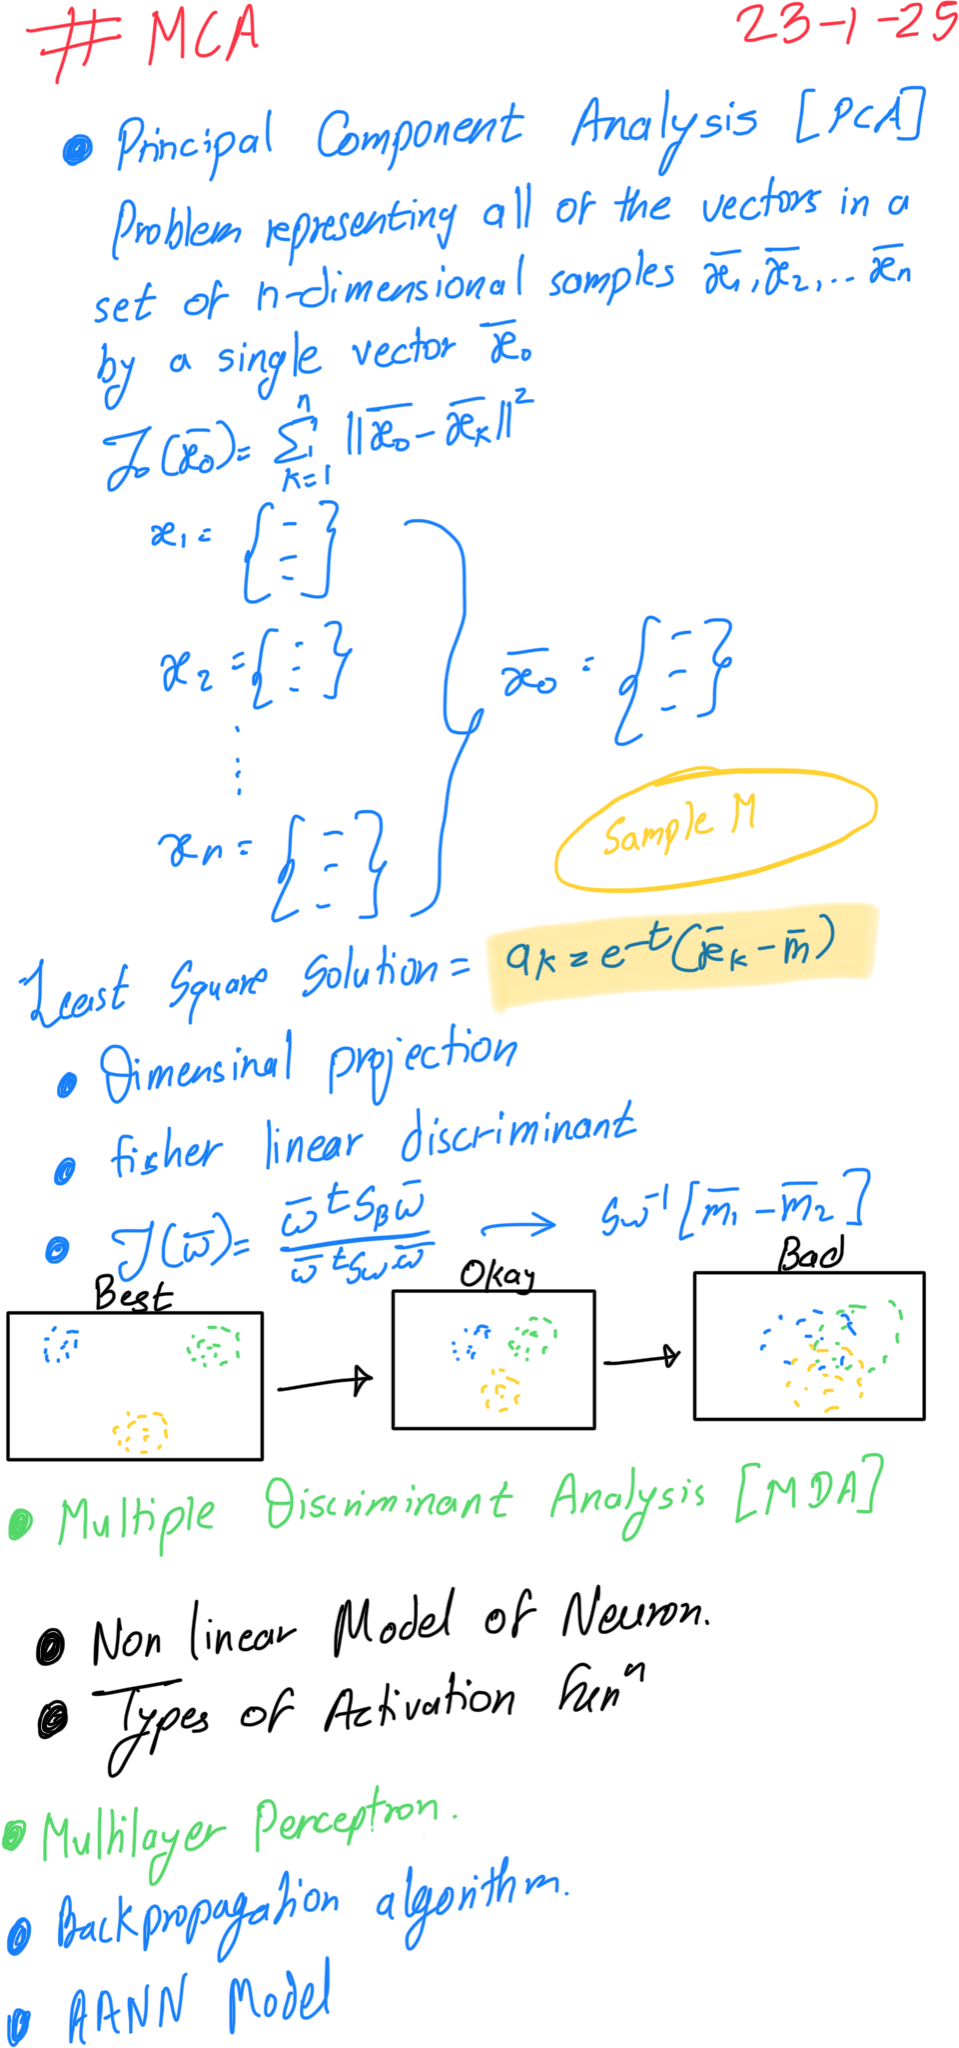 # MCA 23-1-25
• Principal Component Analysis [PCA]
Problem representing all of the vectors in a
set of n-dimensional samples x̄₁, x̄₂, ... x̄n
by a single vector x̄₀
J₀(x̄₀) = Σ k=1 n ||x̄₀ - x̄k||²
x₁ =
x₂ =
x̄₀ =
xn =
Sample M
Least Square Solution = ak = e^-t(x̄k - m̄)
• Dimensinal projection
• fisher linear discriminant
• J(ω̄) = ω̄^t S_B ω̄ / ω̄^t Sω ω̄ → Sω⁻¹ [m̄₁ - m̄₂]
Best Okay Bad
• Multiple Discriminant Analysis [MDA]
• Non linear Model of Neuron.
• Types of Activation funⁿ
• Multilayer Perceptron.
• Backpropagation algorithm.
• AANN Model